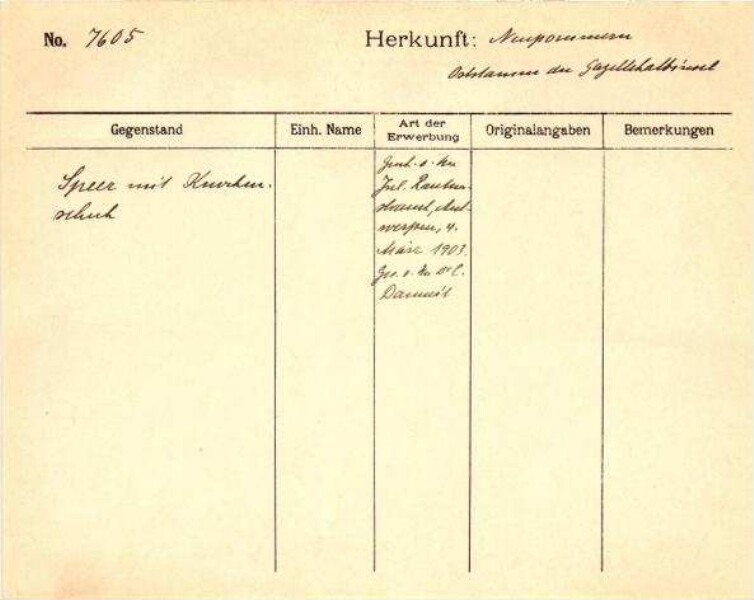 No. 7605
Herkunft: Neupommern
Oststamm der Gazellehalbinsel
Gegenstand
Einh. Name
Art der
Erwerbung
Originalangaben
Bemerkungen
Speer mit Knochen-
schuh
Gesch. v. Hrn
Jul. Rauten-
strauch, Ant-
werpen, 4.
März 1903.
Ges. v. Hrn Dr C.
Danneil